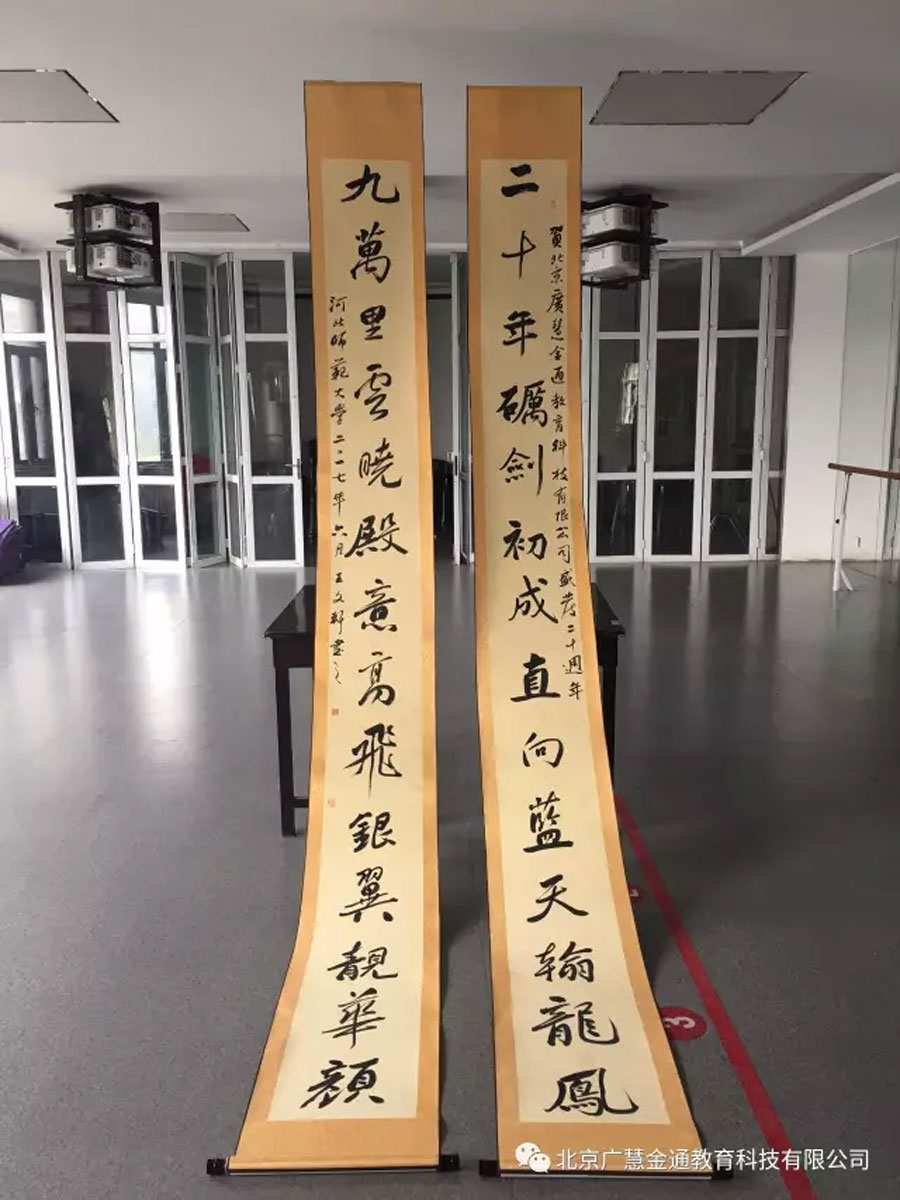 賀北京廣慧金通教育科技有限公司盛慶二十週年
二十年礪劍初成直向藍天翰龍鳳
九萬里雲曉殿意高飛銀翼靚華顏
河北師範大學二〇一七年六月王文軒書
3
北京广慧金通教育科技有限公司